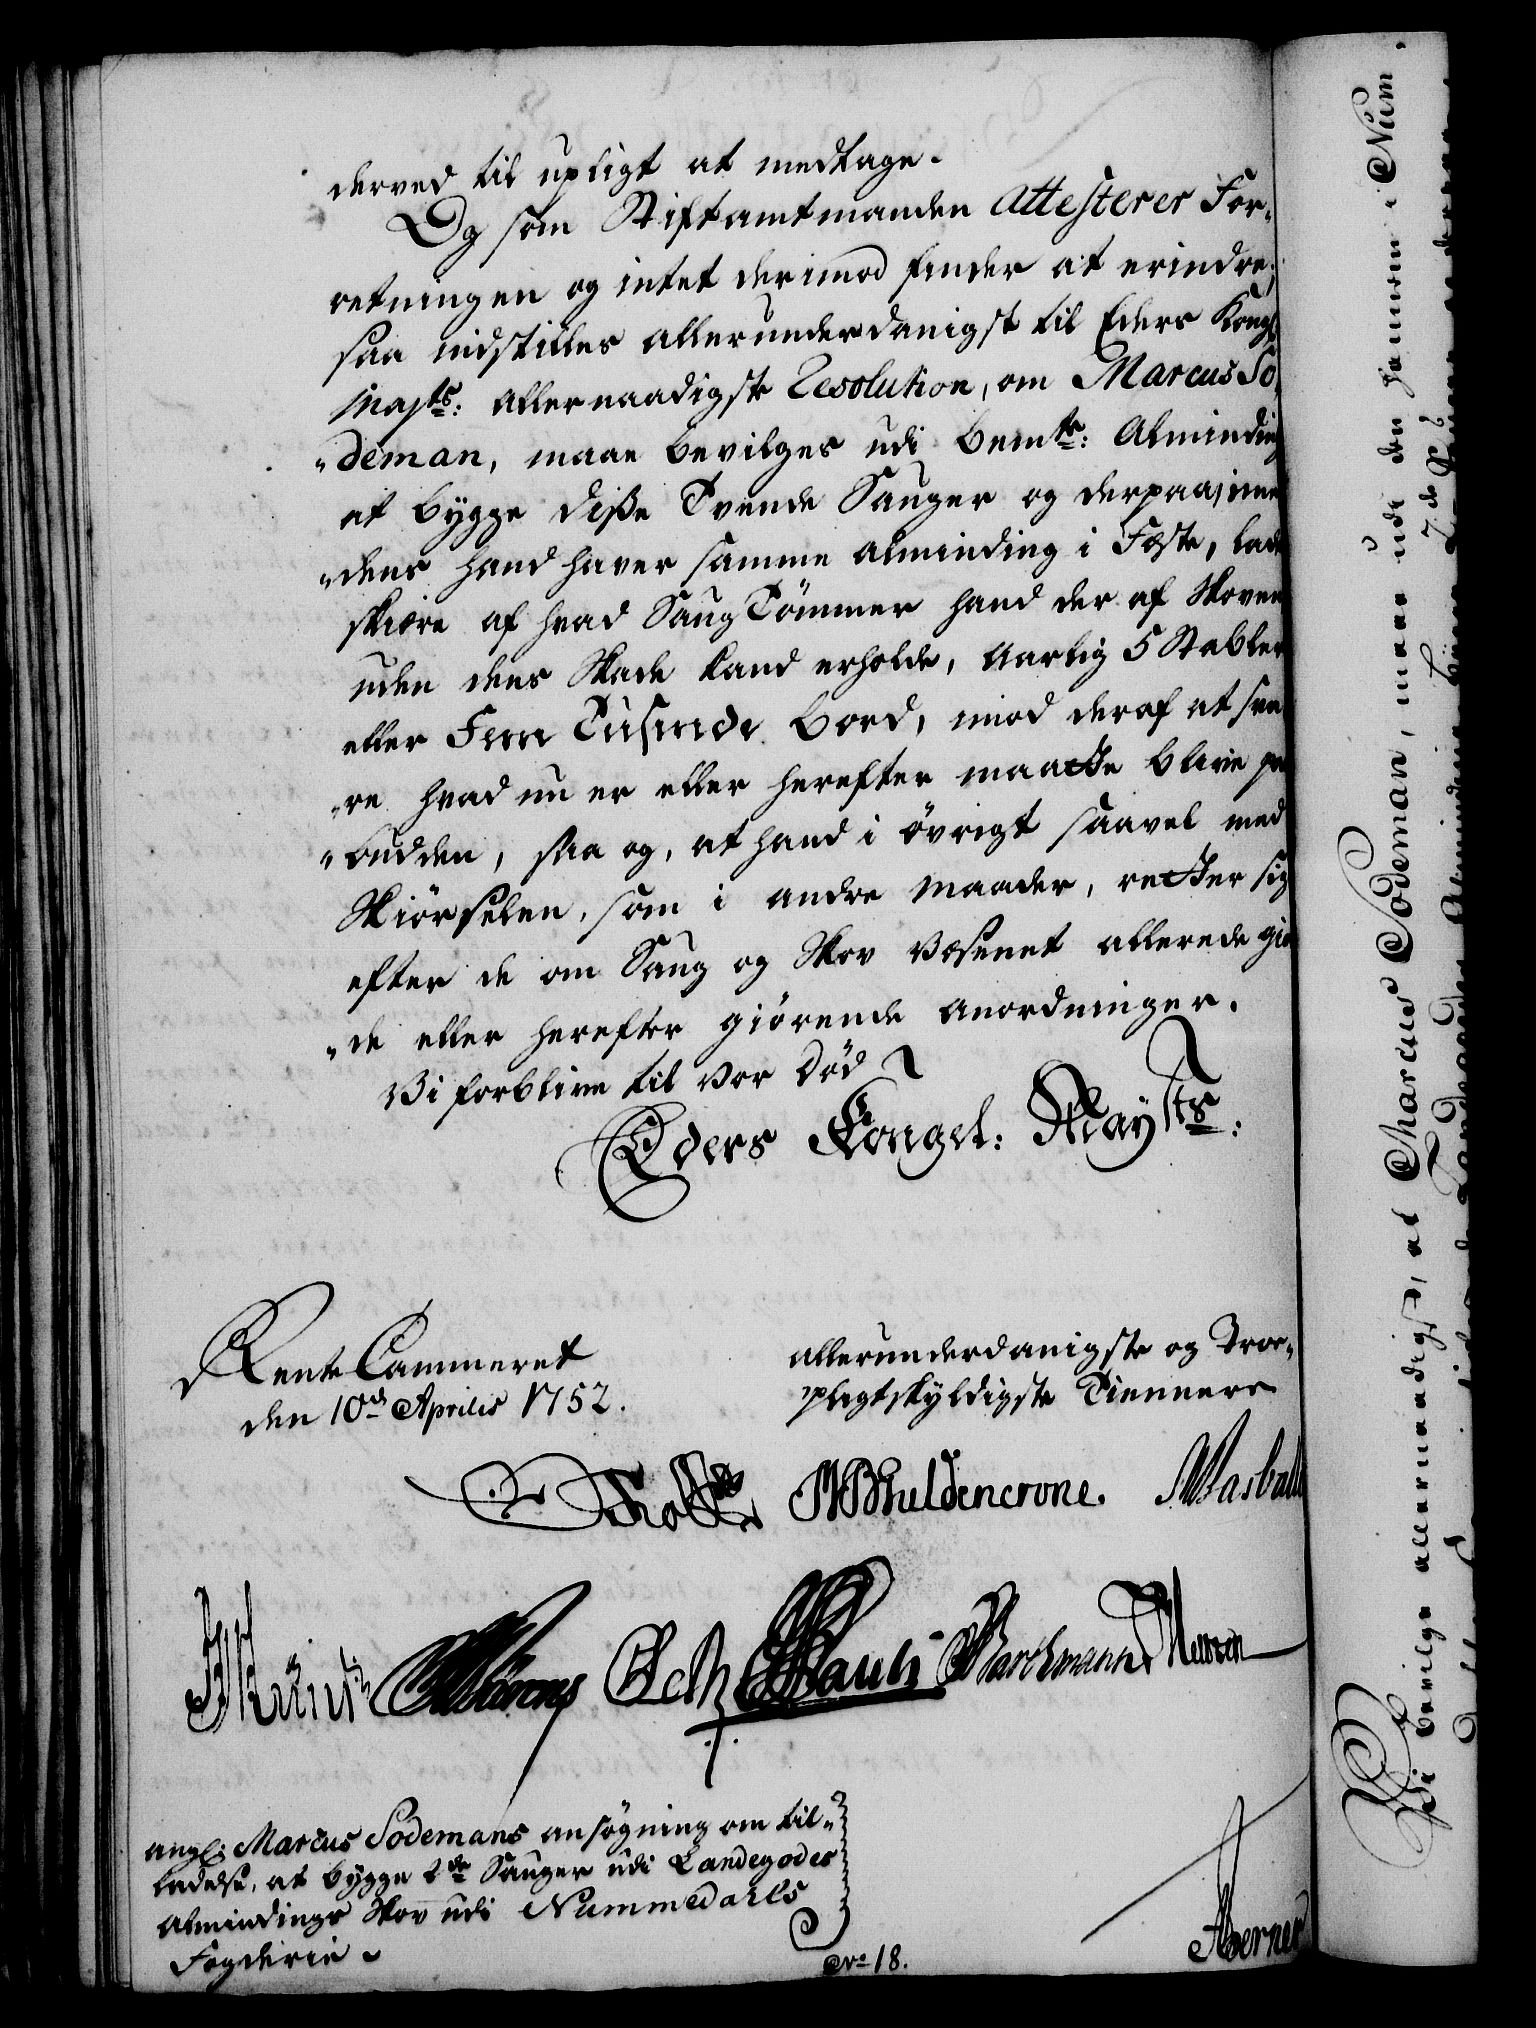 derved til upligt at medtage.
Og som Stiftamtmanden Attesterer For-
retningen og intet derimod finder at erindre;
saa indstilles allerunderdanigst til Eders Kongl:
Mayts: allernaadigste Resolution, om Marcus So-
"deman, maae bevilges udi bemte: Alminding
at bygge diße Tvende Sauger og derpaa, imi-
"dens hand haver samme alminding i Fæste, lade
skiære af hvad Saug Tömmer hand der af Skoven
uden dens Skade kand erholde, aarlig 5 Stabler
eller Fem Tusinde bord, imod deraf at sva-
"re hvad nu er eller herefter maatte blive paa
"budden, saa og, at hand i øvrigt saavel med
Skiörselen, som i andre maader, retter sig
efter de om Saug og Skov Væsenet allerede gior
"de eller herefter giörende anordninger.
Vi forblive til vor Död
Eders Kongel: Mayts:
Rente Cammeret
den 10de Aprilis 1752.
allerunderdanigste og Troe-
pligtskyldigste Tienere
Holstein WBGuldencrone.
Pauli Barchmann
angl: Marcus Sodemans ansøgning om til-
ladelse, at bygge 2de Sauger udi Landegodes
Almindings Skov udi Nummedahls
Fogderie.
No 18.
Berner
Vi bevilge allernaadigst, at Marcus Sodeman, maae udi den ham i Num